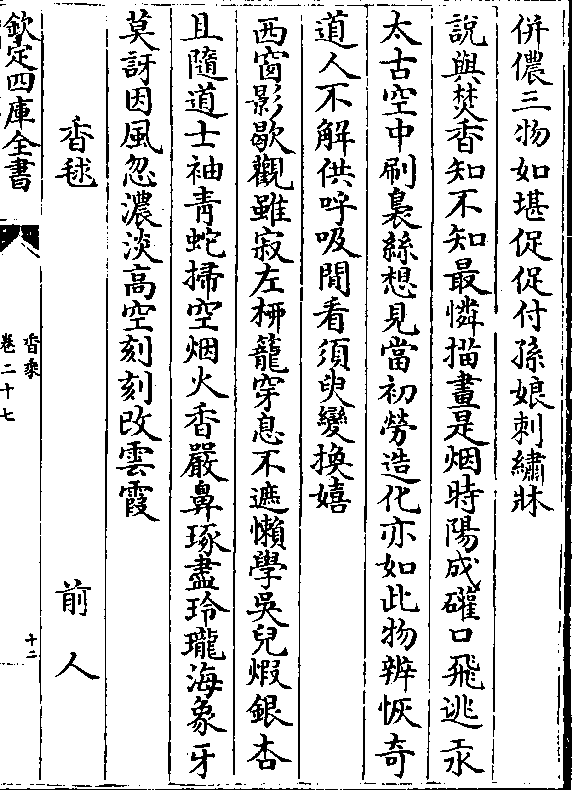 併儂三物如堪促促付孫娘刺繡牀
說與焚香知不知最憐描畫是烟時陽成礶口飛逃汞
太古空中刷裊絲想見當初勞造化亦如此物辨恢奇
道人不解供呼吸閒看須臾變換嬉
西窗影歇觀雖寂左柳籠穿息不遮懶學吳兒煅銀杏
且隨道士袖青蛇掃空烟火香嚴鼻琢盡玲瓏海象牙
莫訝因風忽濃淡高空刻刻改雲霞
香毬 前人
欽定四庫全書
香乘
卷二十七
十二